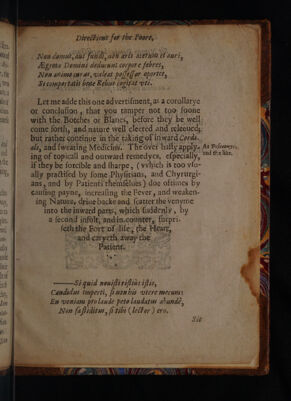 Directions for the Poore.
Non domus, aut fundi, non æris acervus et auri,
Ægroto Domini deducunt corpore febres,
Non animo curas, valeat possessor oportet,
Si comportatis bene Rebus cogitat uti.
Let me adde this one advertisment, as a corollarye
or conclusion, that you tamper not too soone
with the Botches or Blanes, before they be well
come forth, and nature well cleered and releeued;
but rather continue in the taking of inward Cordi-
als, and sweating Medicins. The over hasty apply-
ing of topicall and outward remedyes, especially,
if they be forcible and sharpe, (which is too vsu-
ally practised by some Physitians, and Chyrurgi-
ans, and by Patients themselues) doe oftimes by
causing payne, increasing the Fever, and weaken-
ing Nature, driue backe and scatter the venyme
into the inward parts, which suddenly, by
a second insult, and in counter, surpri-
seth the Fort of life, the Heart,
and caryeth away the
Patient.
As
and the like.
Si quid novisti rectius istis,
Candidus imperti, si non his utere mecum:
En veniam pro laude peto laudatus abundè,
Non fastiditus, si tibi (lector) ero.
Sic